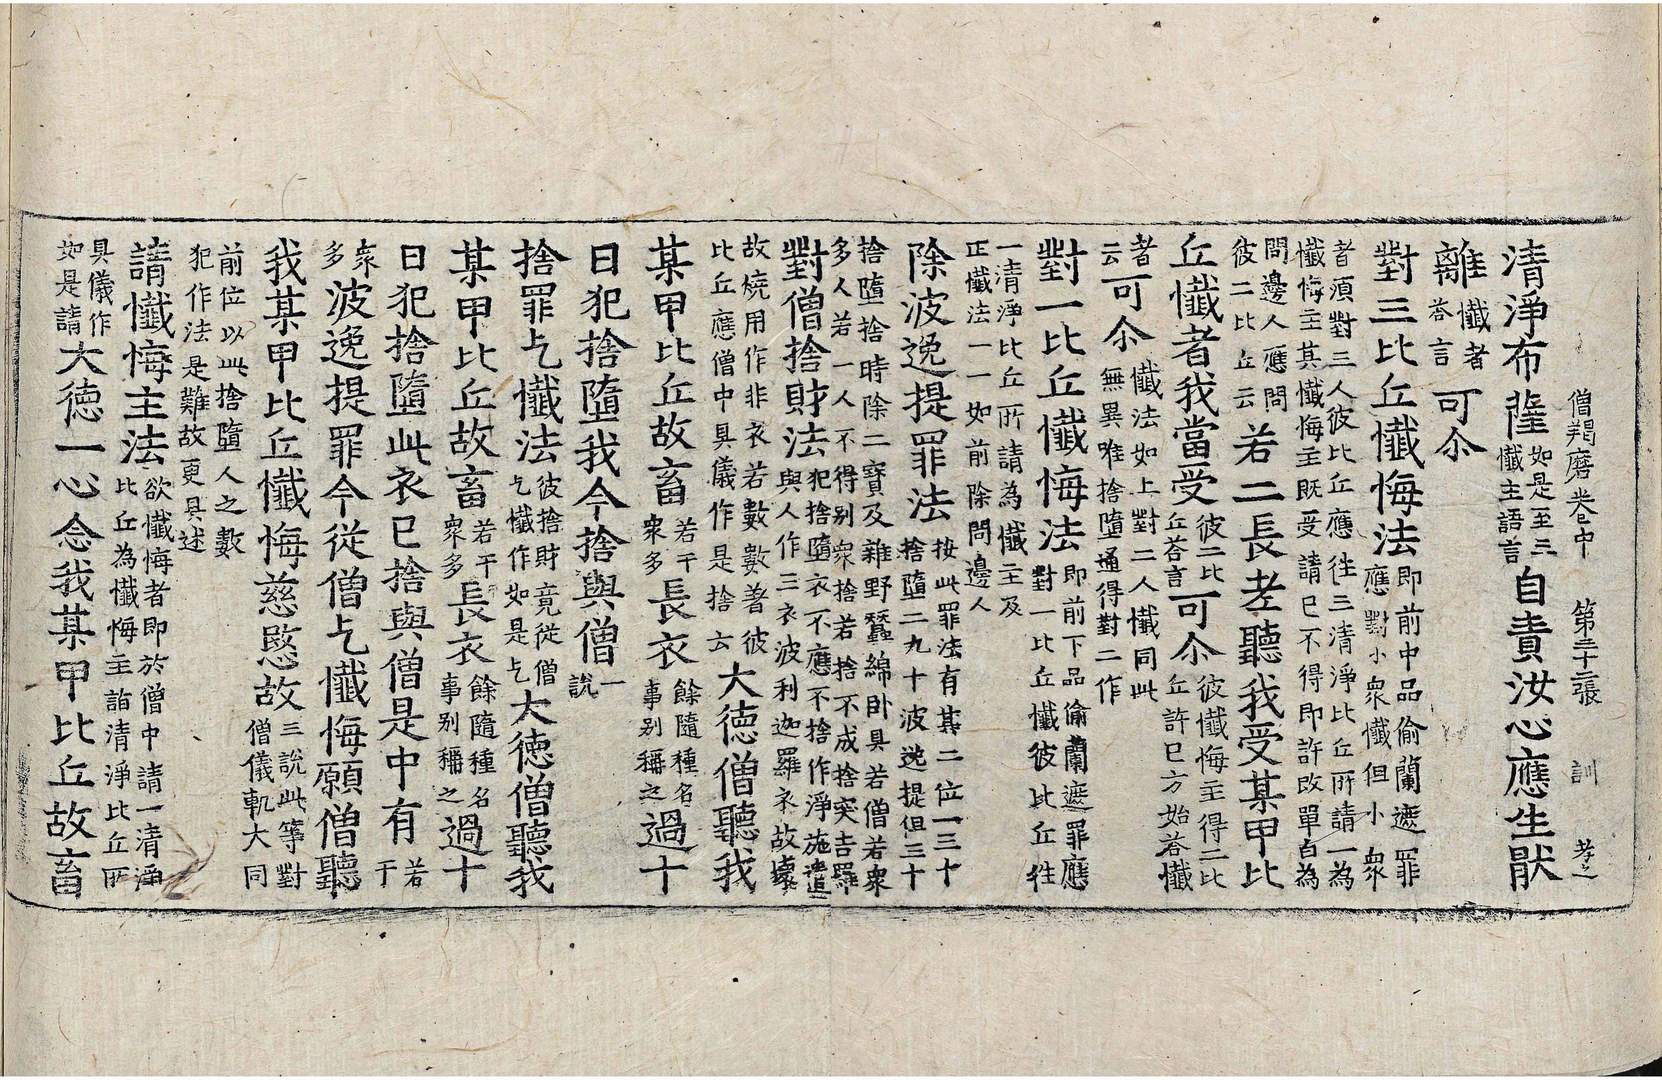 僧羯磨卷中 第三十二張 訓 孝之
清淨布薩如是至三懺主語言自責汝心應生厭
離懺者荅言可尒
對三比丘懺悔法即前中品偷蘭遮罪應對小衆懺但小衆
者須對三人彼比丘應往三清淨比丘所請一為
懺悔主其懺悔主既受請已不得即許改單白為
問邊人應問彼二比丘云若二長老聽我受某甲比
丘懺者我當受彼二比丘荅言可尒彼懺悔主得二比丘許已方始荅懺
者云可尒懺法如上對二人懺同此無異唯捨墮通得對二作
對一比丘懺悔法即前下品偷蘭遮罪應對一比丘懺彼比丘往
一清淨比丘所請為懺主及
正懺法一一如前除問邊人
除波逸提罪法按此罪法有其二位一三十捨墮二九十波逸提但三十
捨墮捨時除二寶及雜野蠶綿卧具若僧若衆
多人若一人不得别衆捨若捨不成捨突吉羅
對僧捨財法犯捨墮衣不應不捨作淨施遣與人作三衣波利迦羅衣故壞
故燒用作非衣若數數著彼比丘應僧中具儀作是捨云大德僧聽我
某甲比丘故畜若干衆多長衣餘隨種名事别稱之過十
日犯捨墮我今捨與僧一說
捨罪乞懺法彼捨財竟從僧乞懺作如是乞大德僧聽我
某甲比丘故畜若干衆多長衣餘隨種名事别稱之過十
日犯捨墮此衣已捨與僧是中有若干
衆多波逸提罪今從僧乞懺悔願僧聽
我某甲比丘懺悔慈愍故三說此等對僧儀軌大同
前位以此捨墮人之數
犯作法是難故更具述
請懺悔主法欲懺悔者即於僧中請一清淨比丘為懺悔主詣清淨比丘所
具儀作如是請大德一心念我某甲比丘故畜